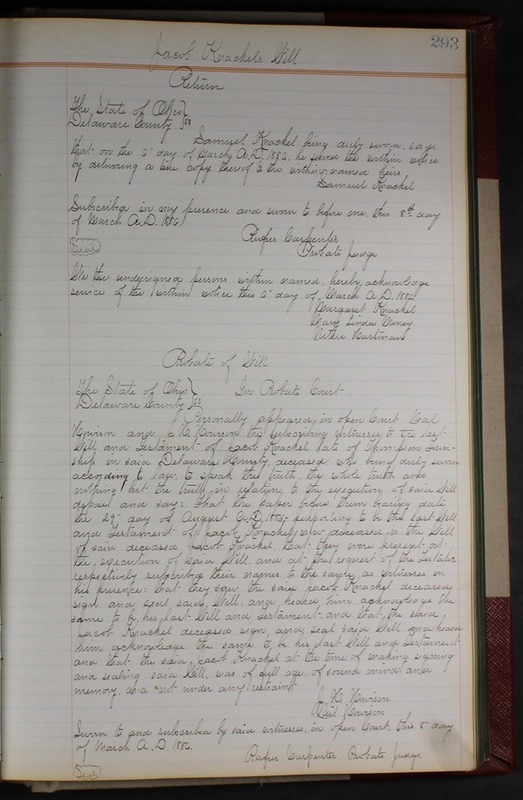 293
Jacob Knackels Will
Return
The State of Ohio }
Delaware County } ss
Samuel Knackel being duly sworn, says
that on the 6" day of March A.D. 1886, he served the within notice
by delivering a true copy thereof to the within named heirs
Samuel Knackel
Subscribed in my presence and sworn to before me, this 8th day
of March A.D. 1886.
Rufus Carpenter
Seal
Probate Judge
We the undersigned persons within named, hereby acknowledge
service of the within notice this 6" day of March A.D. 1886
Margaret Knackel
Mary Linda
Probate of Will
The State of Ohio } In Probate Court
Delaware County } ss
Personally appeared in open Court Neil
and the subscribing witnesses to the last
Will and Testament of Jacob Knackel late of Thompson Town-
ship in said Delaware County, deceased, who being duly sworn
according to law, to speak the truth, the whole truth and
nothing but the truth, in relation to the execution of said Will
depose and say: That the paper before them bearing date
the 29" day of August A.D. 1885, purporting to be the last Will
and Testament of Jacob Knackel, now deceased is the Will
of said deceased Jacob Knackel, that they were present at
the execution of said Will, and at the request of the testator
respectively subscribed their names to the same, as witnesses, in
his presence; that they saw the said Jacob Knackel deceased
sign and seal said Will, and heard him acknowledge the
same to be his last Will and Testament and that, the said
Jacob Knackel deceased sign, and seal said Will and heard
him acknowledge the same to be his last Will and Testament
and that the said Jacob Knackel at the time of making signing
and sealing said Will, was of full age, of sound mind and
memory, and not under any restraint
Neil
Sworn to and subscribed by said witnesses, in open Court, this 8" day
of March A.D. 1886.
Rufus Carpenter Probate Judge
Seal